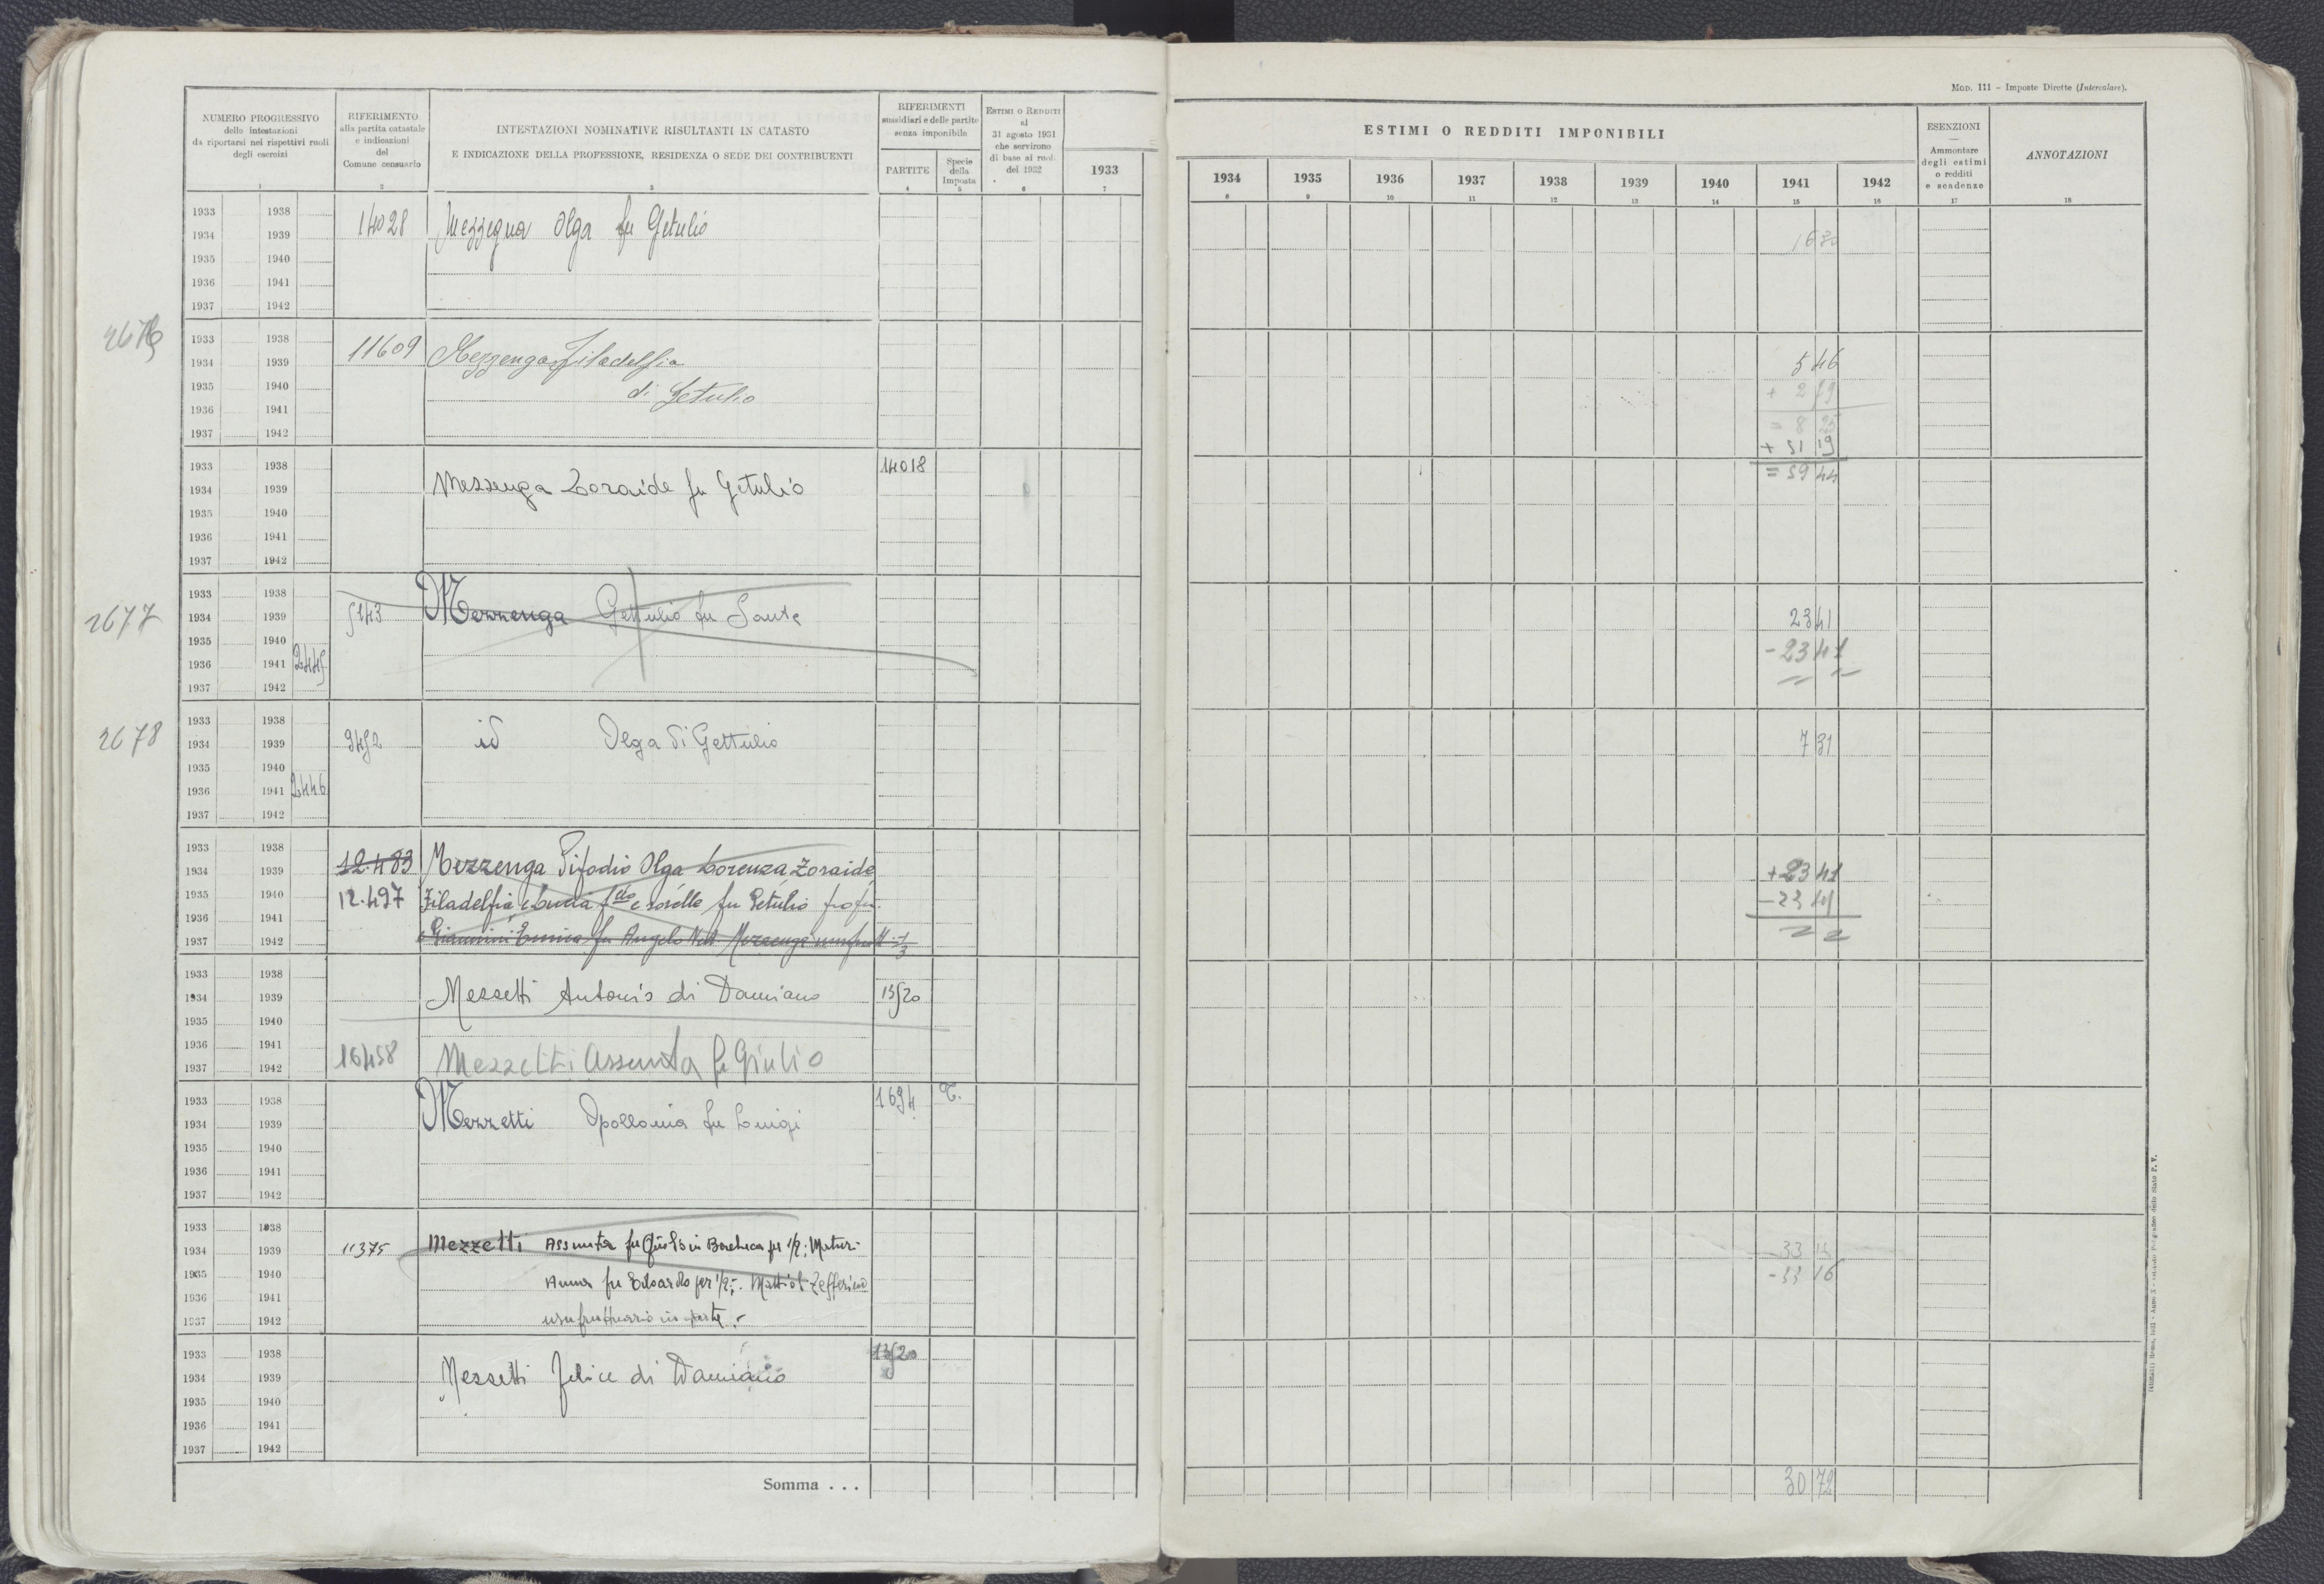 MOD. 111 - Imposte Dirette (Intercalare).
NUMERO PROGRESSIVO
delle intestazioni
da riportarsi nei rispettivi ruoli
degli esercizi
1
RIFERIMENTO
alla partita catastale
e indicazioni
del
Comune censuario
2
INTESTAZIONI NOMINATIVE RISULTANTI IN CATASTO
E INDICAZIONE DELLA PROFESSIONE, RESIDENZA O SEDE DEI CONTRIBUENTI
3
RIFERIMENTI
sussidiari e delle partite
senza imponibile
PARTITE
4
Specie
della
Imposta
5
ESTIMI O REDDITI
al
31 agosto 1931
che servirono
di base ai ruoli
del 1932
6
1933
7
ESTIMI O REDDITI IMPONIBILI
1934 1935 1936 1937 1938 1939 1940 1941 1942
8 9 10 11 12 13 14 15 16
ESENZIONI
Ammontare
degli estimi
o redditi
e scadenze
17
ANNOTAZIONI
18
1933 1938
1934 1939 14028 Mezzegna Olga fu Getulio
1935 1940
1936 1941
1937 1942
1933 1938
1934 1939 11609 Mezzenga Filadelfia 5 46
1935 1940 di Getulio + 2 79
1936 1941 = 8 25
1937 1942 + 51 19
1933 1938 14018 = 59 44
1934 1939 Mezzenga Zoraide fu Getulio
1935 1940
1936 1941
1937 1942
1933 1938
2677 1934 1939 5143 Mezzenga Gettulio fu Sante 23 41
1935 1940 - 23 41
1936 1941 2445
1937 1942
1933 1938
2678 1934 1939 9452 id Olga di Gettulio 7 31
1935 1940
1936 1941 2446
1937 1942
1933 1938
1934 1939 12.483 Mezzenga Olga Lorenza, Zoraide, + 23 41
1935 1940 12.497 Filadelfia, e sorelle fu Getulio - 23 41
1936 1941
1937 1942 e Giannini fu Angelo Ved. Mezzenga
1933 1938
1934 1939 Mezzetti Antonio di Damiano 13520
1935 1940
1936 1941
1937 1942 16458 Mezzetti Assunta fu Giulio
1933 1938 1694 T.
1934 1939 Mezzetti Apollonia fu Luigi
1935 1940
1936 1941
1937 1942
1933 1938
1934 1939 11375 Mezzetti Assunta fu Giulio in per 1/2;
1935 1940 Anna fu Edoardo per 1/2; Zefferino - 33 16
1936 1941
1937 1942 usufruttuario in parte.-
1933 1938 13520
1934 1939 Mezzetti Felice di Damiano
1935 1940
1936 1941
1937 1942
Somma . . . 30 72